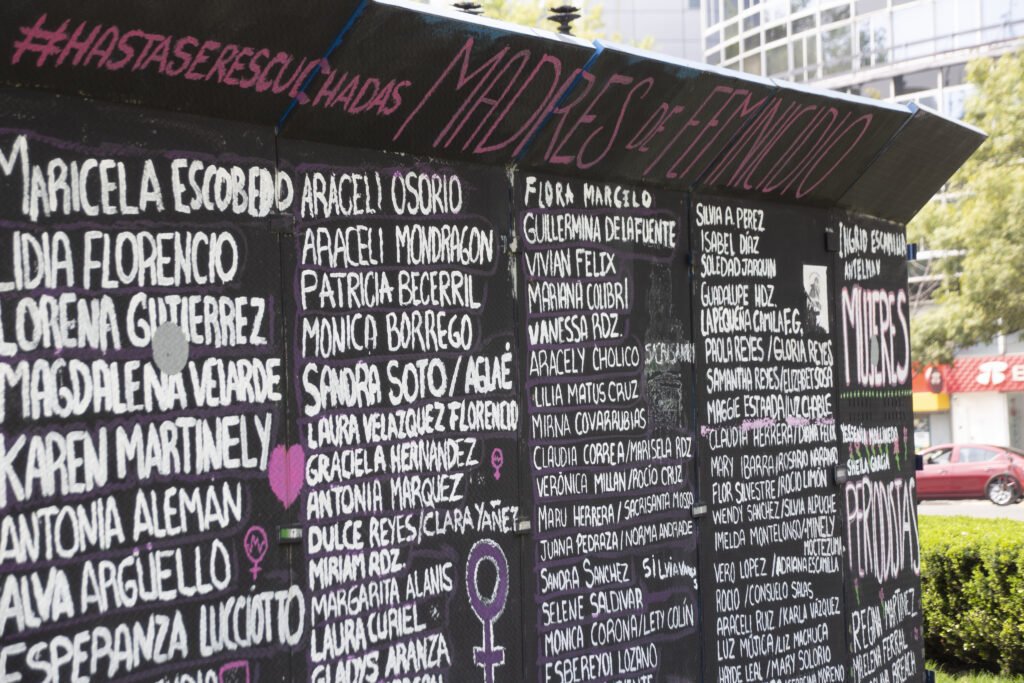 #HASTASERESCUCHADAS MADRES DE FEMINICIDIO
MARICELA ESCOBEDO
LIDIA FLORENCIO
LORENA GUTIERREZ
MAGDALENA VELARDE
KAREN MARTINELY
ANTONIA ALEMAN
ALVA ARGÜELLO
ESPERANZA LUCCIOTTO
ARACELI OSORIO
ARACELI MONDRAGON
PATRICIA BECERRIL
MONICA BORREGO
SANDRA SOTO/AGLAÉ
LAURA VELAZQUEZ FLORENCIO
GRACIELA HERNANDEZ
ANTONIA MARQUEZ
DULCE REYES/CLARA YAÑEZ
MIRIAM RDZ.
MARGARITA ALANIS
LAURA CURIEL
GLADYS ARANZA
FLORA MARCELO
GUILLERMINA DELAFUENTE
VIVIAN FELIX
MARIANA COLIBRÍ
VANESSA RDZ.
ARACELY CHOLICO
LILIA MATUS CRUZ
MIRNA COVARRUBIAS
CLAUDIA CORREA/MARISELA RDZ
VERÓNICA MILLAN/ROCÍO CRUZ
MARU HERRERA/SACRISANTA MOSSO
JUANA PEDRAZA/NORMA ANDRADE
SANDRA SANCHEZ
SELENE SALDIVAR
MONICA CORONA/LETY COLÍN
LOZANO
SILVIA A. PEREZ
ISABEL DÍAZ
SOLEDAD JARQUIN
GUADALUPE HDZ.
LAPEQUEÑA CAMILA F.G.
PAOLA REYES/GLORIA REYES
SAMANTHA REYES/ELIZABET SOSA
MAGGIE ESTRADA/LUZ CHABLE
CLAUDIA HERRERA/DIANA FELIX
MARY IBARRA/ROSARIO NARANJO
FLOR SILVESTRE/ROCIO LIMON
WENDY SANCHEZ/SILVIA ALPUCHE
IMELDA MONTELONGO/MINELY
MOCTEZUMA
VERO LOPEZ/ADRIANA ESCAMILLA
ROCIO/CONSUELO SALAS
ARACELI RUIZ/KARLA VÁZQUEZ
LUZ MÚJICA/LUZ MACHUCA
HAYDE LEAL/MARY SOLORIO
INGRID ESCAMILLA
MUJERES
PERIODISTAS
REGINA MARTINEZ